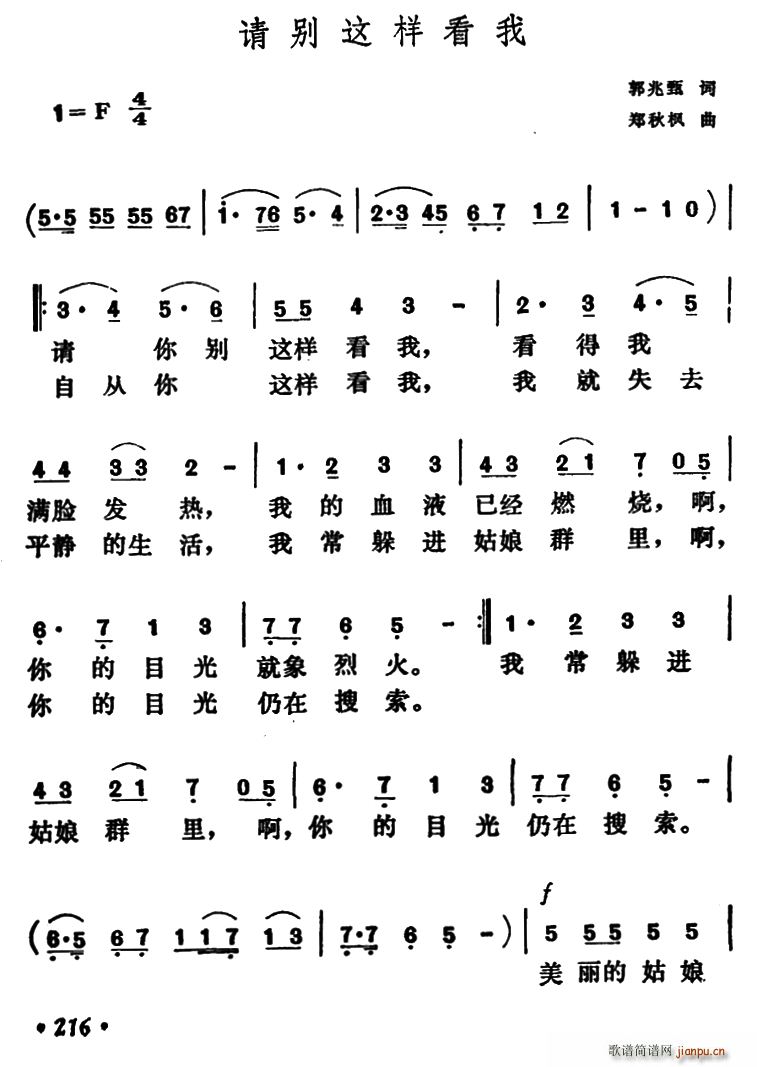 请别这样看我
1=F 4/4
郭兆甄 词
郑秋枫 曲
(5·5 55 55 67 | i· 76 5· 4 | 2·3 45 67 12 | 1-10) |
‖: 3· 4 5· 6 | 55 4 3 - | 2· 3 4· 5 |
请 你别 这样看我, 看得我
自从你 这样看我, 我就失去
44 33 2 - | 1· 2 3 3 | 43 21 7 05 |
满脸发热, 我的血液已经燃烧,啊,
平静的生活, 我常躲进姑娘群里,啊,
6· 7 1 3 | 77 6 5 - :‖ 1· 2 3 3 |
你的目光就象烈火。 我常躲进
你的目光仍在搜索。
43 21 7 05 | 6· 7 1 3 | 77 6 5 - |
姑娘群里,啊,你的目光仍在搜索。
f
(6·5 67 117 13 | 7·7 6 5 -) | 5 55 5 5 |
美丽的姑娘
·216·
歌谱简谱网 jianpu.cn